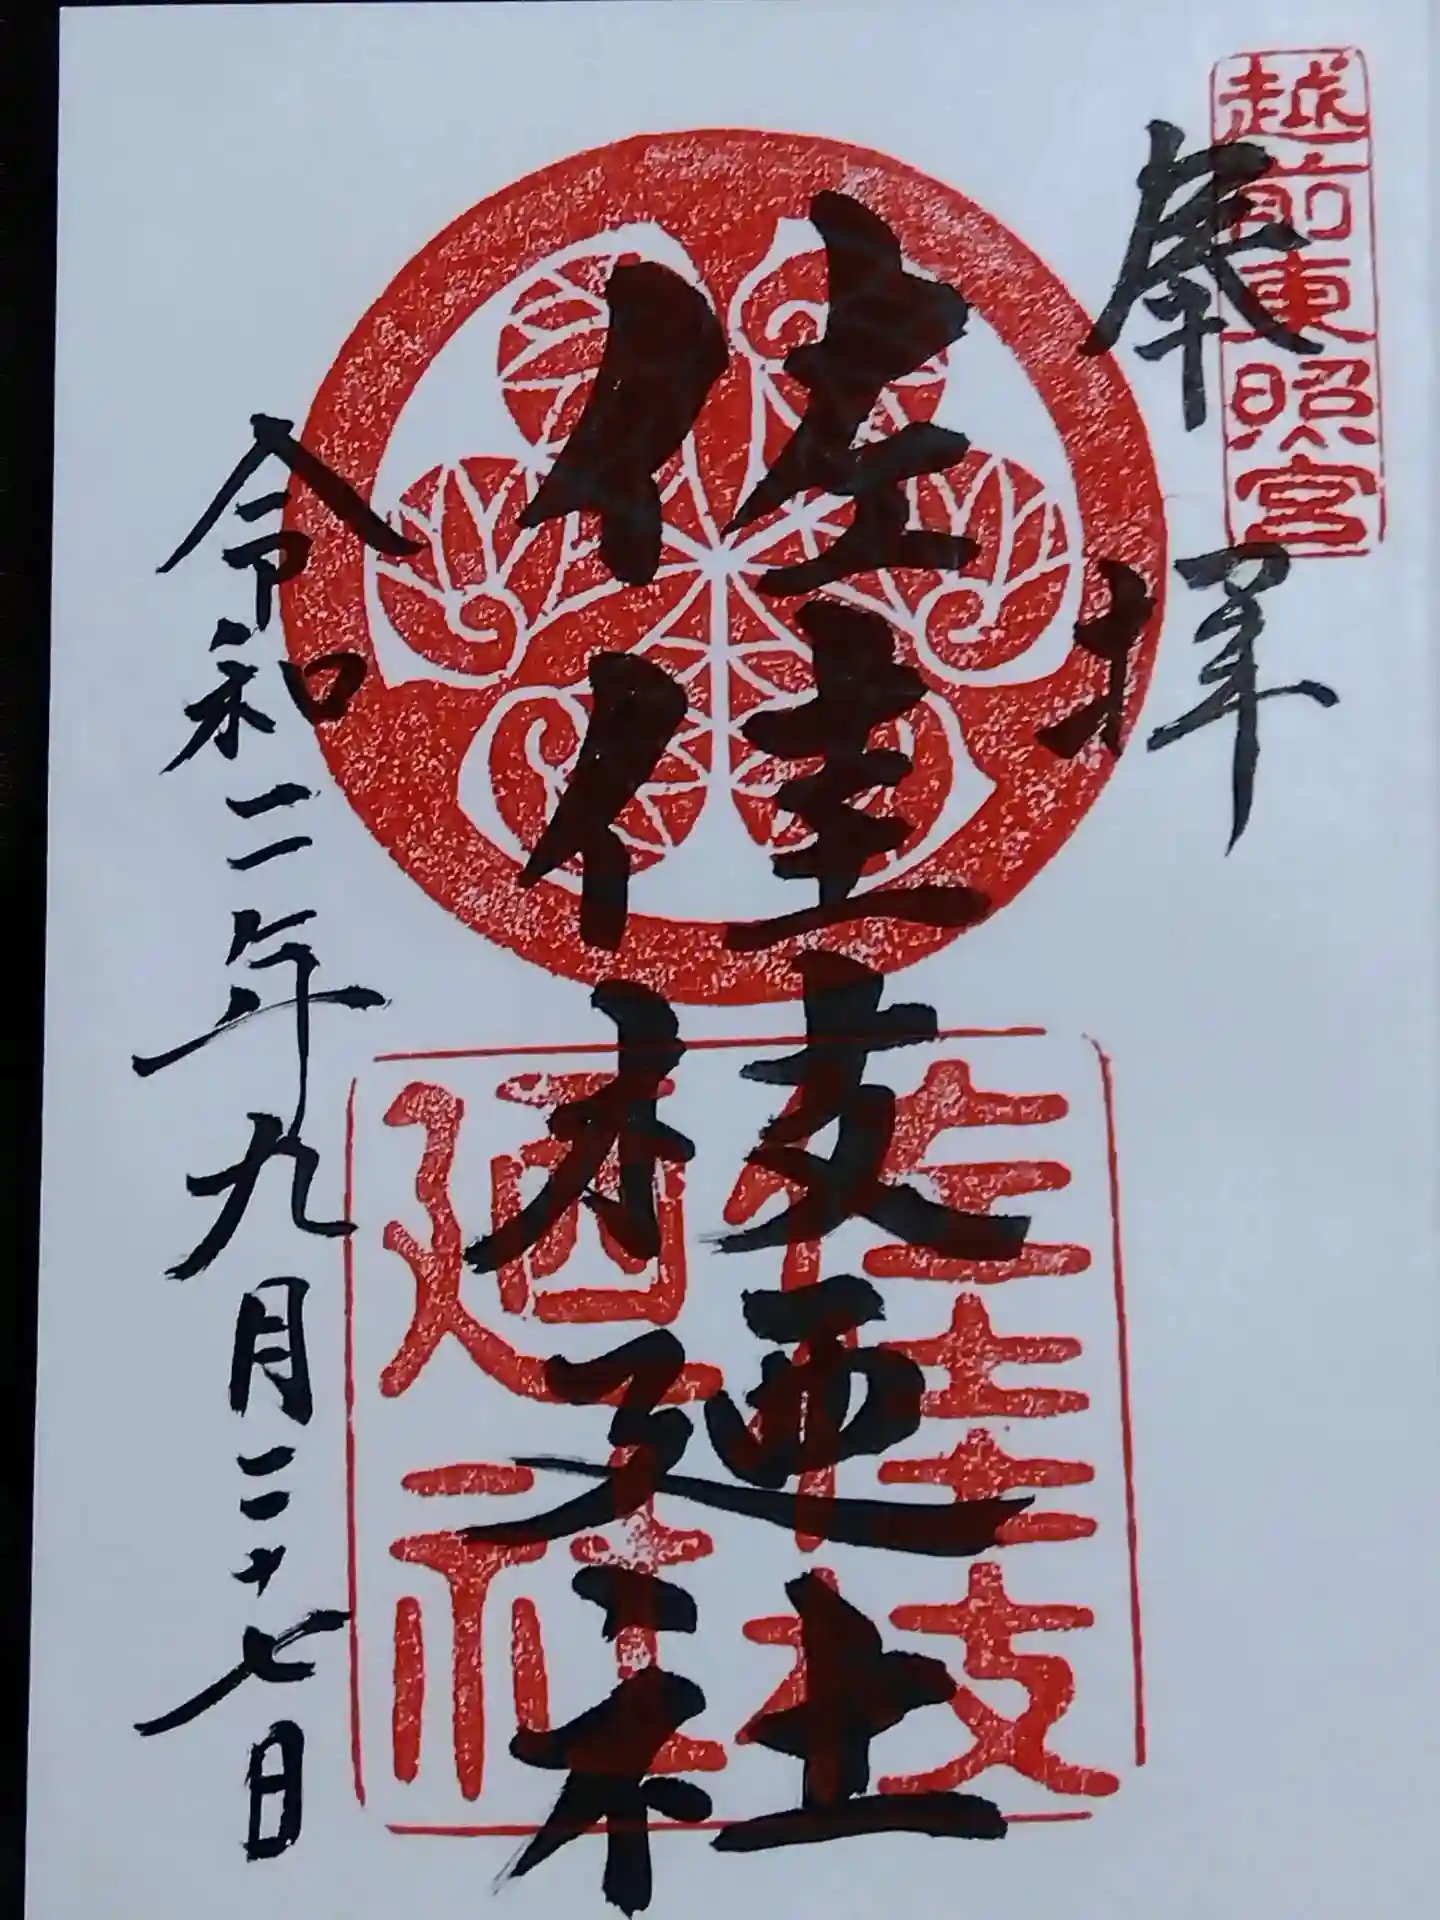 越前東照宮
奉拝
佐佳枝廼社
佐佳枝
廼社
令和二年九月二十七日